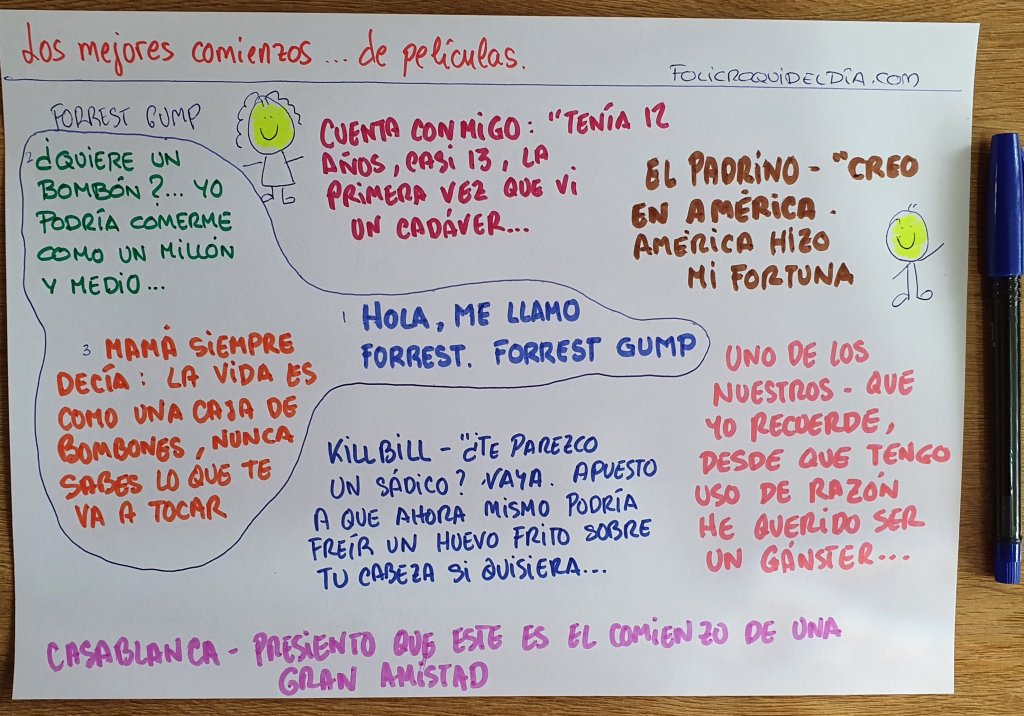 Los mejores comienzos ... de películas.
FOLICROQUIDELDÍA.COM
FORREST GUMP
1 HOLA, ME LLAMO
FORREST. FORREST GUMP
2 ¿QUIERE UN
BOMBÓN?... YO
PODRÍA COMERME
COMO UN MILLÓN
Y MEDIO...
3 MAMÁ SIEMPRE
DECÍA: LA VIDA ES
COMO UNA CAJA DE
BOMBONES, NUNCA
SABES LO QUE TE
VA A TOCAR
CUENTA CONMIGO: "TENÍA 12
AÑOS, CASI 13, LA
PRIMERA VEZ QUE VI
UN CADÁVER...
EL PADRINO - "CREO
EN AMÉRICA.
AMÉRICA HIZO
MI FORTUNA
KILL BILL - "¿TE PAREZCO
UN SÁDICO? VAYA. APUESTO
A QUE AHORA MISMO PODRÍA
FREÍR UN HUEVO FRITO SOBRE
TU CABEZA SI QUISIERA...
UNO DE LOS
NUESTROS - QUE
YO RECUERDE,
DESDE QUE TENGO
USO DE RAZÓN
HE QUERIDO SER
UN GÁNSTER...
CASABLANCA - PRESIENTO QUE ESTE ES EL COMIENZO DE UNA
GRAN AMISTAD